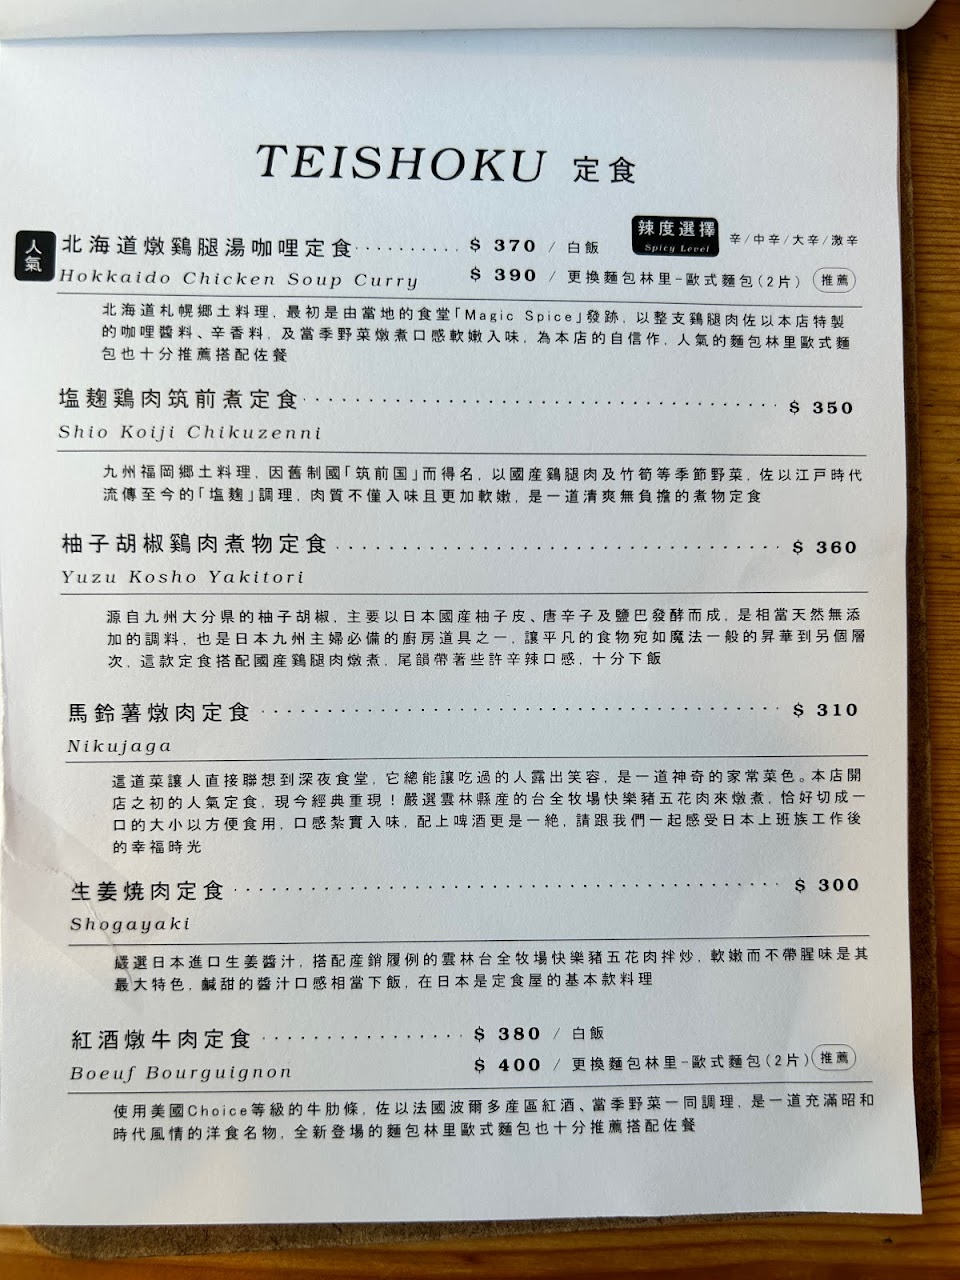 TEISHOKU 定食
人氣
北海道燉鷄腿湯咖哩定食 $ 370 / 白飯
辣度選擇 Spicy Level 辛/中辛/大辛/激辛
Hokkaido Chicken Soup Curry $ 390 / 更換麵包林里-歐式麵包(2片) 推薦
北海道札幌鄉土料理, 最初是由當地的食堂「Magic Spice」發跡, 以整支鷄腿肉佐以本店特製
的咖哩醬料、辛香料, 及當季野菜燉煮口感軟嫩入味, 為本店的自信作, 人氣的麵包林里歐式麵
包也十分推薦搭配佐餐
塩麴鶏肉筑前煮定食 $ 350
Shio Koiji Chikuzenni
九州福岡鄉土料理, 因舊制國「筑前国」而得名, 以國産鷄腿肉及竹筍等季節野菜, 佐以江戸時代
流傳至今的「塩麴」調理, 肉質不僅入味且更加軟嫩, 是一道清爽無負擔的煮物定食
柚子胡椒鷄肉煮物定食 $ 360
Yuzu Kosho Yakitori
源自九州大分県的柚子胡椒, 主要以日本國産柚子皮、唐辛子及鹽巴發酵而成, 是相當天然無添
加的調料, 也是日本九州主婦必備的廚房道具之一, 讓平凡的食物宛如魔法一般的昇華到另個層
次, 這款定食搭配國産鷄腿肉燉煮, 尾韻帶著些許辛辣口感, 十分下飯
馬鈴薯燉肉定食 $ 310
Nikujaga
這道菜讓人直接聯想到深夜食堂, 它總能讓吃過的人露出笑容, 是一道神奇的家常菜色。本店開
店之初的人氣定食, 現今經典重現！嚴選雲林縣産的台全牧場快樂豬五花肉來燉煮, 恰好切成一
口的大小以方便食用, 口感紮實入味, 配上啤酒更是一絶, 請跟我們一起感受日本上班族工作後
的幸福時光
生姜焼肉定食 $ 300
Shogayaki
嚴選日本進口生姜醬汁, 搭配産銷履例的雲林台全牧場快樂豬五花肉拌炒, 軟嫩而不帶腥味是其
最大特色, 鹹甜的醬汁口感相當下飯, 在日本是定食屋的基本款料理
紅酒燉牛肉定食 $ 380 / 白飯
Boeuf Bourguignon $ 400 / 更換麵包林里-歐式麵包(2片) 推薦
使用美國Choice等級的牛肋條, 佐以法國波爾多産區紅酒、當季野菜一同調理, 是一道充滿昭和
時代風情的洋食名物, 全新登場的麵包林里歐式麵包也十分推薦搭配佐餐